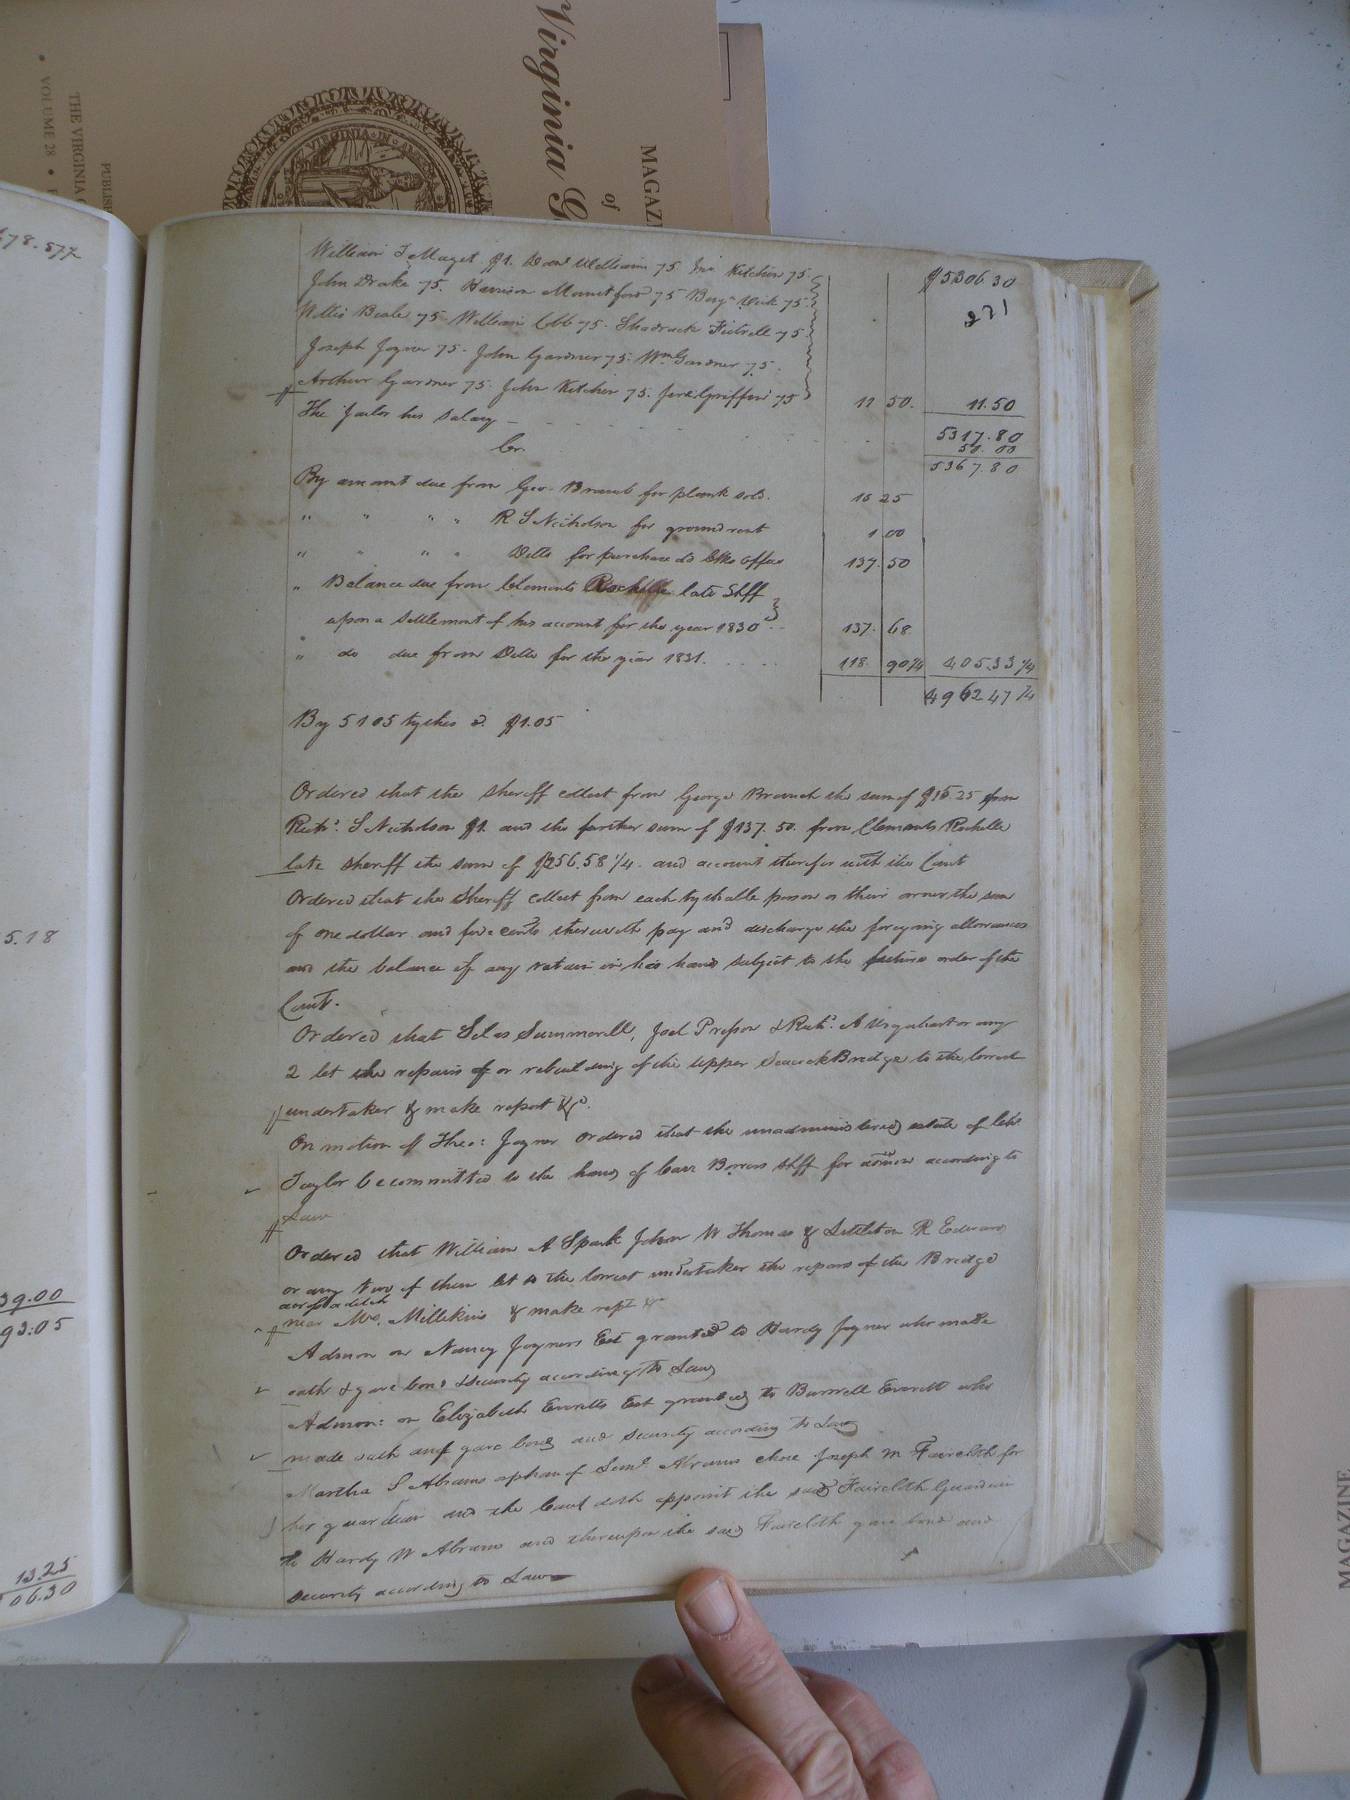 Virginia G
MAGAZI
of
PUBLISH
THE VIRGINIA
VOLUME 28
VIRGINIA IN
678.577
5.18
39.00
93:05
13.25
06.30
William T Maget $1. Danl William 75 Jno Kitchen 75.
$5306.30
271
John Drake 75. Harrison Mountfort 75 Benjn Vick 75
Willis Beale 75 William Cobb 75. Shadrack Futrell 75
Joseph Joyner 75. John Gardner 75. Wm Gardner 75.
Arthur Gardner 75. John Kitchen 75. Jere Griffin 75 11 50. 11.50
The Jailor his salary
5317.80
50.00
Cr. 5367.80
By amount due from Geo. Branch for plank sold. 10 25
" " " " R S Nicholson for ground rent 1 00
" " " " Ditto for purchase old Clks office 137. 50
" Balance due from Clements Rochelle late Shff
upon a settlement of his account for the year 1830 137. 68
" do due from Ditto for the year 1831. 118. 90 1/4 405.33 1/4
4962 47 3/4
By 5105 tythes @ $1.05
Ordered that the sheriff collect from George Branch the sum of $10.25 from
Richd. S Nicholson $1. and the further sum of $137.50. from Clements Rochelle
late sheriff the sum of $256.58 1/4. and account therefor with the Court
Ordered that the Sheriff collect from each tythable person or their owner the sum
of one dollar and five cents therewith pay and discharge the foregoing allowances
and the balance if any retain in his hands subject to the future order of the
Court.
Ordered that Silas Summerell, Joel Presson & Richd. A Urquhart or any
2 let the repairs of or rebuilding of the upper Seacock Bridge to the lowest
undertaker & make report &c.
On motion of Theo: Joyner ordered that the unadministered estate of
Taylor be committed to the hands of Carr Bowers Shff for admon according to
Law
Ordered that William A Spark John W Thomas & Littleton R Edwards
or any two of them let to the lowest undertaker the repairs of the Bridge
across a ditch
near Mrs. Millikins & make rept &c
Admon on Nancy Joyners Est granted to Hardy Joyner who made
oath & gave bond & security according to Law
Admon: on Elizabeth Everetts Est granted to Burwell Everett who
made oath and gave bond and security according to Law
Martha S Abrams orphan of Saml. Abrams chose Joseph M Faircloth for
her guardian and the Court doth appoint the said Faircloth Guardian
to Hardy W Abrams and thereupon the said Faircloth gave bond and
security according to Law
MAGAZINE